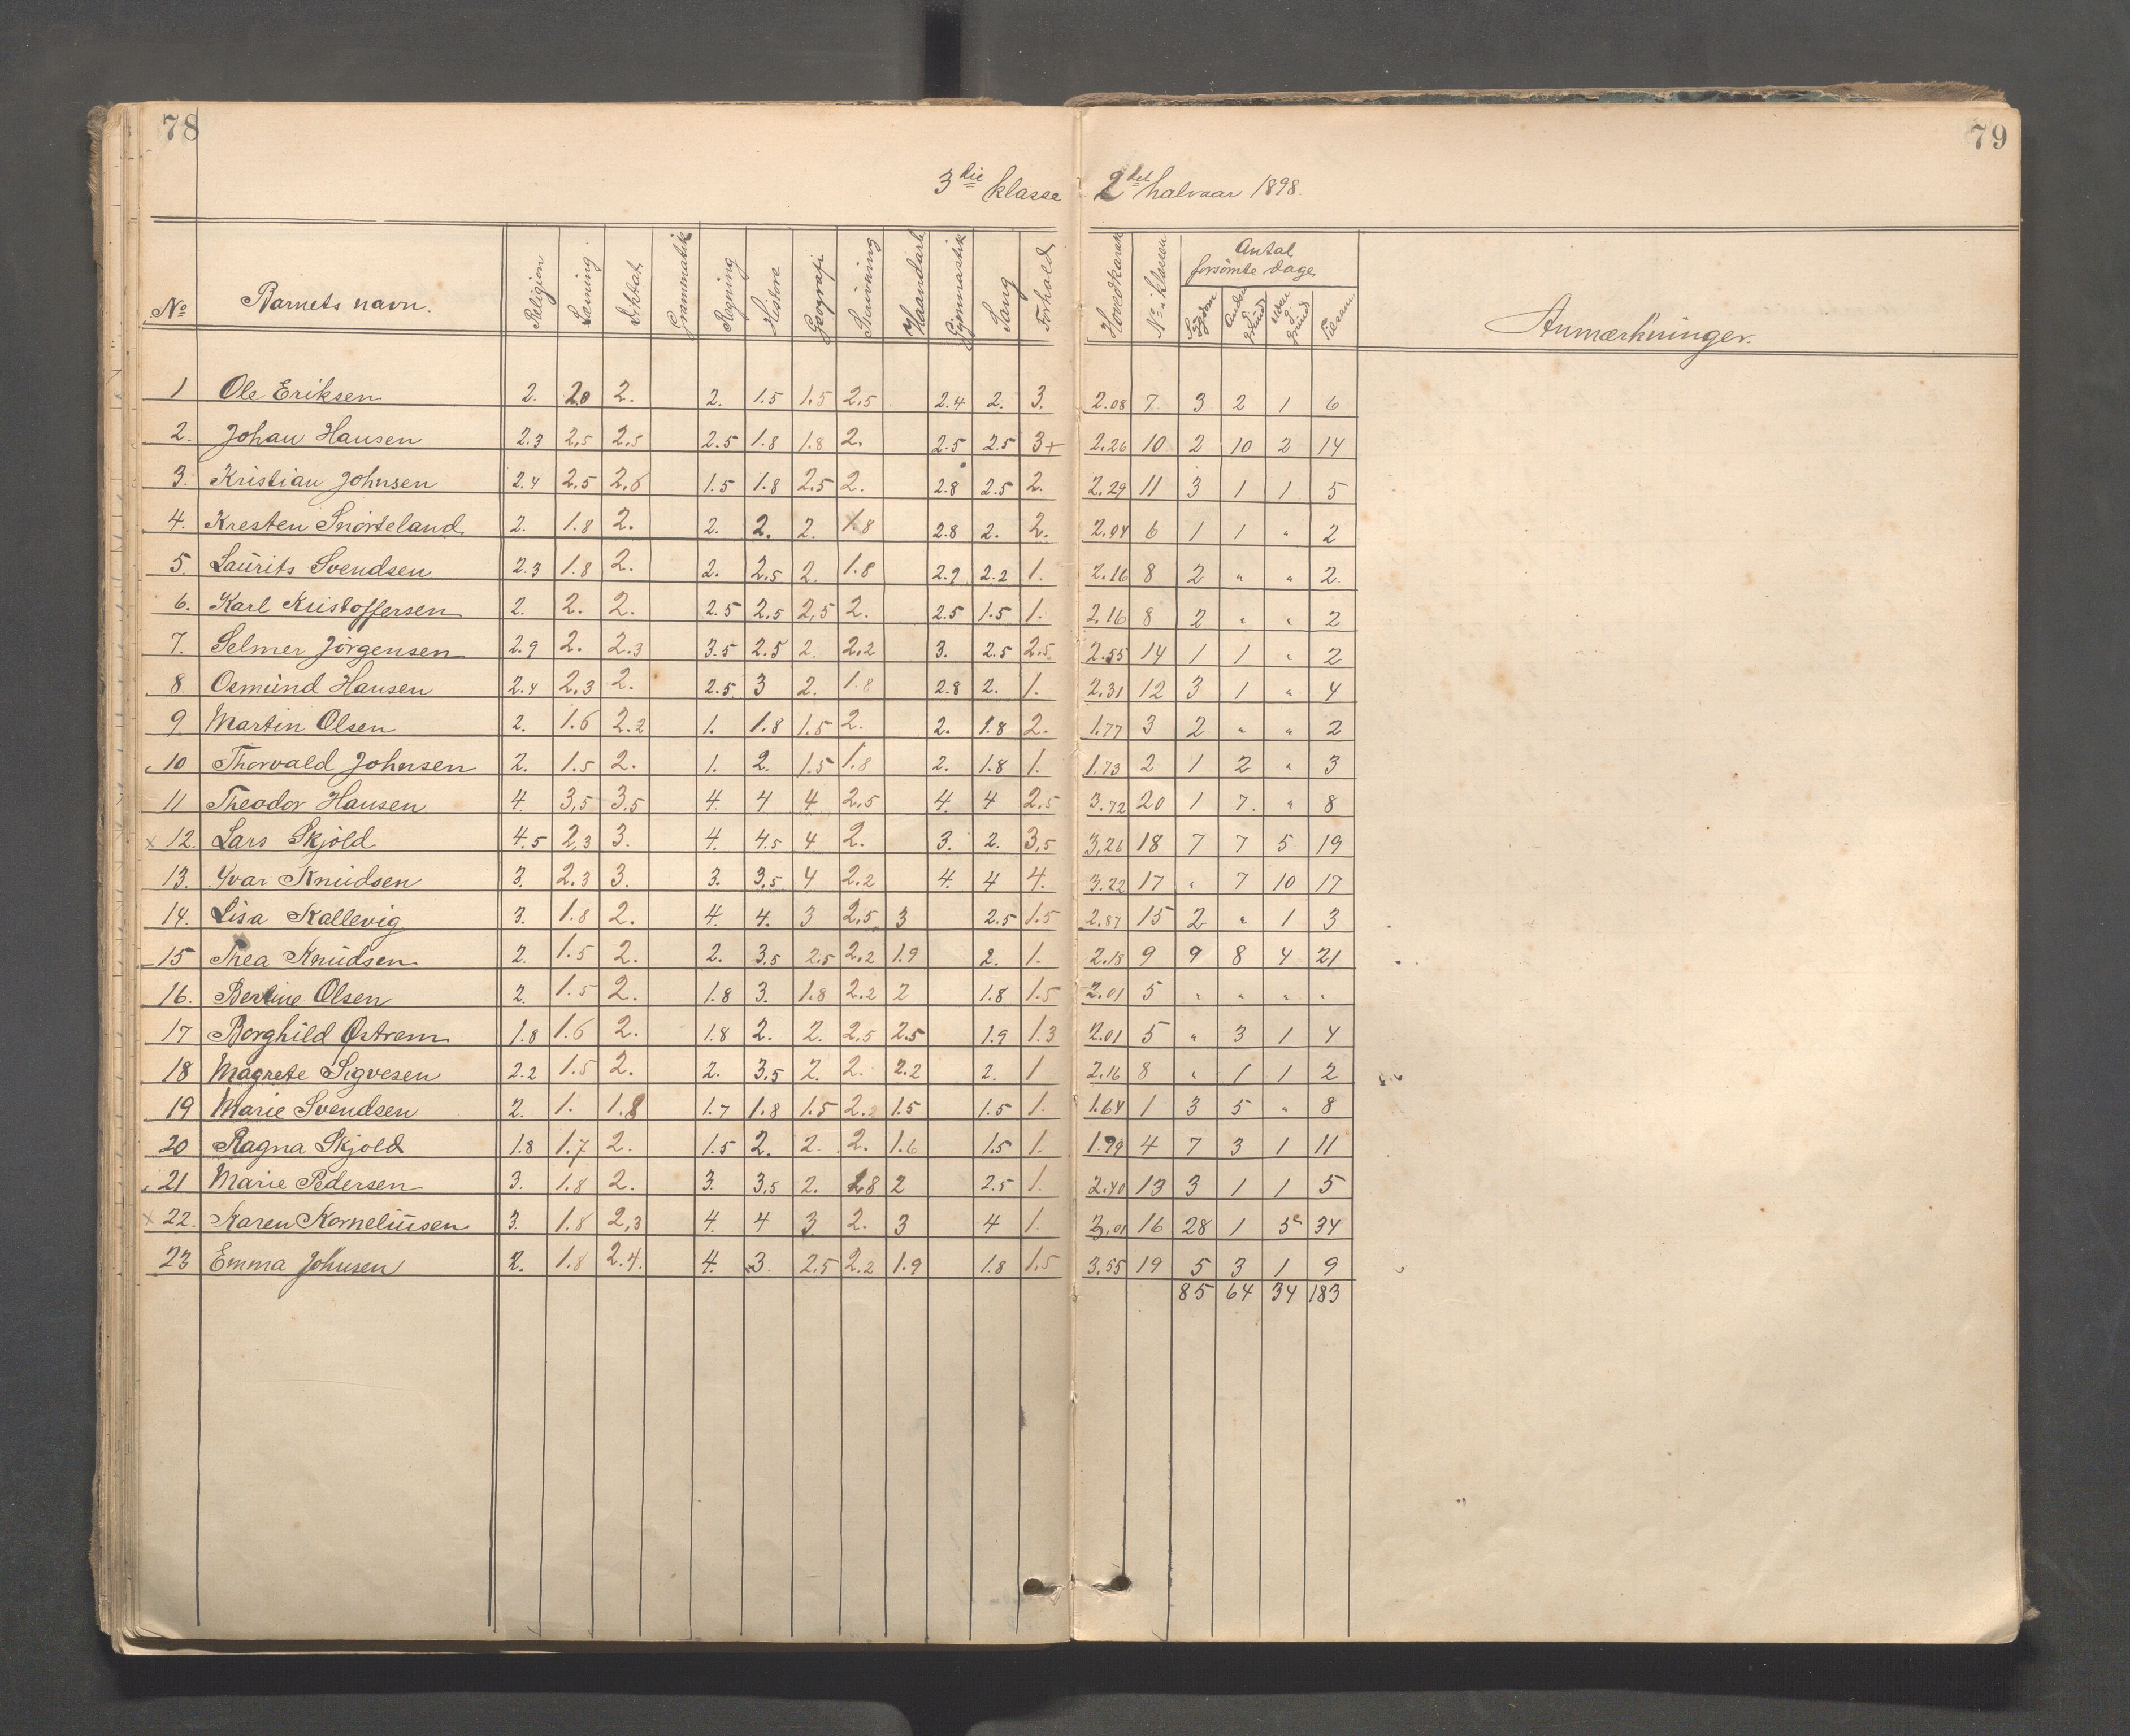 78
79
3die klasse 2det halvaar 1898.
No Barnets navn. Religion Læsning Diktat Grammatik Regning Historie Geografi Skrivning Haandarb. Gymnastik Sang Forhold Hovedkarak. No i klassen Antal forsømte dage Sygdom Anden grund Uden grund Tilsam. Anmærkninger.
1 Ole Eriksen 2. 2.0 2. 2. 1.5 1.5 2.5 2.4 2. 3. 2.08 7. 3 2 1 6
2. Johan Hansen 2.3 2.5 2.5 2.5 1.8 1.8 2. 2.5 2.5 3+ 2.26 10 2 10 2 14
3. Kristian Johnsen 2.4 2.5 2.6 1.5 1.8 2.5 2. 2.8 2.5 2. 2.29 11 3 1 1 5
4. Kresten Snørteland 2. 1.8 2. 2. 2. 2. 1.8 2.8 2. 2. 2.04 6 1 1 " 2
5. Laurits Svendsen 2.3 1.8 2. 2. 2.5 2. 1.8 2.9 2.2 1. 2.16 8 2 " " 2.
6. Karl Kristoffersen 2. 2. 2. 2.5 2.5 2.5 2. 2.5 1.5 1. 2.16 8 2 " " 2
7. Selmer Jørgensen 2.9 2. 2.3 3.5 2.5 2. 2.2 3. 2.5 2.5 2.55 14 1 1 " 2
8. Osmund Hansen 2.4 2.3 2. 2.5 3 2. 1.8 2.8 2. 1. 2.31 12 3 1 " 4
9 Martin Olsen 2. 1.6 2.2 1. 1.8 1.5 2. 2. 1.8 2. 1.77 3 2 " " 2
10 Thorvald Johnsen 2. 1.5 2. 1. 2. 1.5 1.8 2. 1.8 1. 1.73 2 1 2 " 3
11 Theodor Hansen 4. 3,5 3.5 4. 4 4 2,5 4. 4 2.5 3.72 20 1 7. " 8
x 12. Lars Skjold 4.5 2,3 3. 4. 4.5 4 2. 3. 2. 3,5 3,26 18 7 7 5 19
13. Yvar Knudsen 3. 2.3 3. 3. 3,5 4 2.2 4. 4 4. 3.22 17 " 7 10 17
14. Lisa Kallevig 3. 1.8 2. 4. 4. 3 2,5 3 2.5 1.5 2.87 15 2 " 1 3
15 Thea Knudsen 2. 1.5 2. 2. 3.5 2.5 2.2 1.9 2. 1. 2.18 9 9 8 4 21
16. Bertine Olsen 2. 1.5 2. 1.8 3. 1.8 2.2 2 1.8 1.5 2.01 5 " " " "
17 Borghild Østrem 1.8 1.6 2. 1.8 2. 2. 2,5 2.5 1.9 1.3 2.01 5 " 3 1 4
18 Magrete Sigvesen 2.2 1.5 2. 2. 3,5 2. 2. 2.2 2. 1 2.16 8 " 1 1 2
19 Marie Svendsen 2. 1. 1.8 1.7 1.8 1.5 2.2 1.5 1.5 1. 1.64 1 3 5 " 8
20 Ragna Skjold 1.8 1.7 2. 1.5 2. 2. 2. 1.6 1.5 1. 1.79 4 7 3 1 11
21 Marie Pedersen 3. 1.8 2. 3. 3,5 2. 1.8 2 2.5 1. 2.40 13 3 1 1 5
x 22. Karen Korneliusen 3. 1.8 2,3 4. 4 3. 2. 3 4 1. 3,01 16 28 1 5 34
23 Emma Johnsen 2. 1.8 2.4. 4. 3. 2.5 2.2 1.9 1.8 1.5 3.55 19 5 3 1 9
85 64 34 183